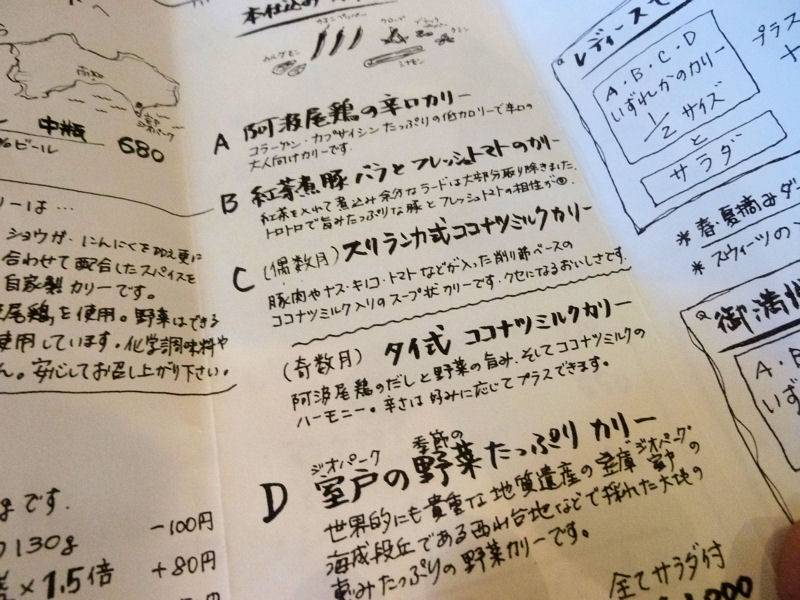 中瓶 680
ビール
リーは…
ショウガ、にんにくを加え更に
合わせて配合したスパイスを
自家製カリーです。
尾鶏」を使用。野菜はできる
使用しています。化学調味料や
ん。安心してお召し上がり下さい。
gです.
130g -100円
×1.5倍 +80円
本仕込み
カルダモン
クローブ
シナモン
A 阿波尾鶏の辛口カリー
コラーゲン・カプサイシンたっぷりの低カロリーで辛口の
大人向けカリーです。
B 紅茶煮豚バラとフレッシュトマトのカリー
紅茶を入れて煮込み余分なラードは大部分取り除きました.
トロトロで旨みたっぷりな豚とフレッシュトマトの相性が
C (偶数月) スリランカ式ココナツミルクカリー
豚肉やナス・キノコ・トマトなどが入った削り節ベースの
ココナツミルク入りのスープ状カリーです・クセになるおいしさです.
(奇数月) タイ式 ココナツミルクカリー
阿波尾鶏のだしと野菜の旨み.そしてココナツミルクの
ハーモニー。辛さは好みに応じてプラスできます。
ジオパーク 季節の
D 室戸の野菜たっぷりカリー
世界的にも貴重な地質遺産の宝庫ジオパーク室戸の
海成段丘である西山台地などで採れた大地の
恵みたっぷりの野菜カリーです。
全てサラダ付
レディースセ
A・B・C・D
いずれかのカリー
1/2 サイズ
と
サラダ
プラス
+
*春・夏摘みダ
*スウィーツの
御満
A・B
いず